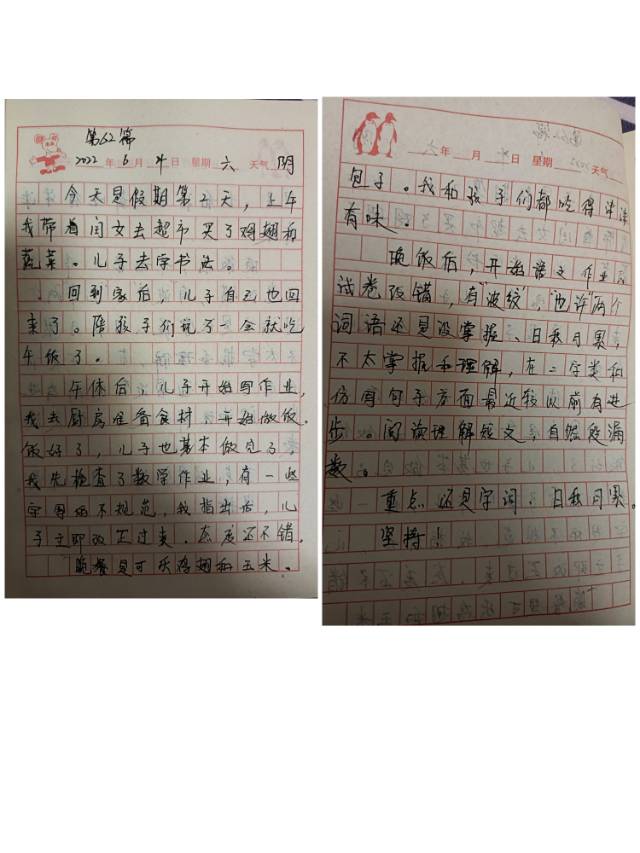 第62篇
2022年6月4日 星期六 天气阴
今天是假期第2天，上午
我带着闰女去超市买了鸡翅和
蔬菜。儿子去学书法。
回到家后，儿子自己也回
来了。陪孩子们玩了一会就吃
午饭了。
午休后，儿子开始写作业，
我去厨房准备食材，开始做饭。
饭好了，儿子也基本做完了，
我先检查了数学作业，有一些
字写的不规范，我指出后，儿
子立即改正过来，态度还不错。
晚餐是可乐鸡翅和玉米。
年 月 日 星期 天气
包子。我和孩子们都吃得津津
有味。
晚饭后，开始语文作业及
试卷改错，有“波纹”，“也许”两个
词语还是没掌握、日积月累，
不太掌握和理解，在二字类和
仿写句子方面最近较以前有进
步。阅读理解短文，自然段漏
数。
重点还是字词、日积月累。
坚持！